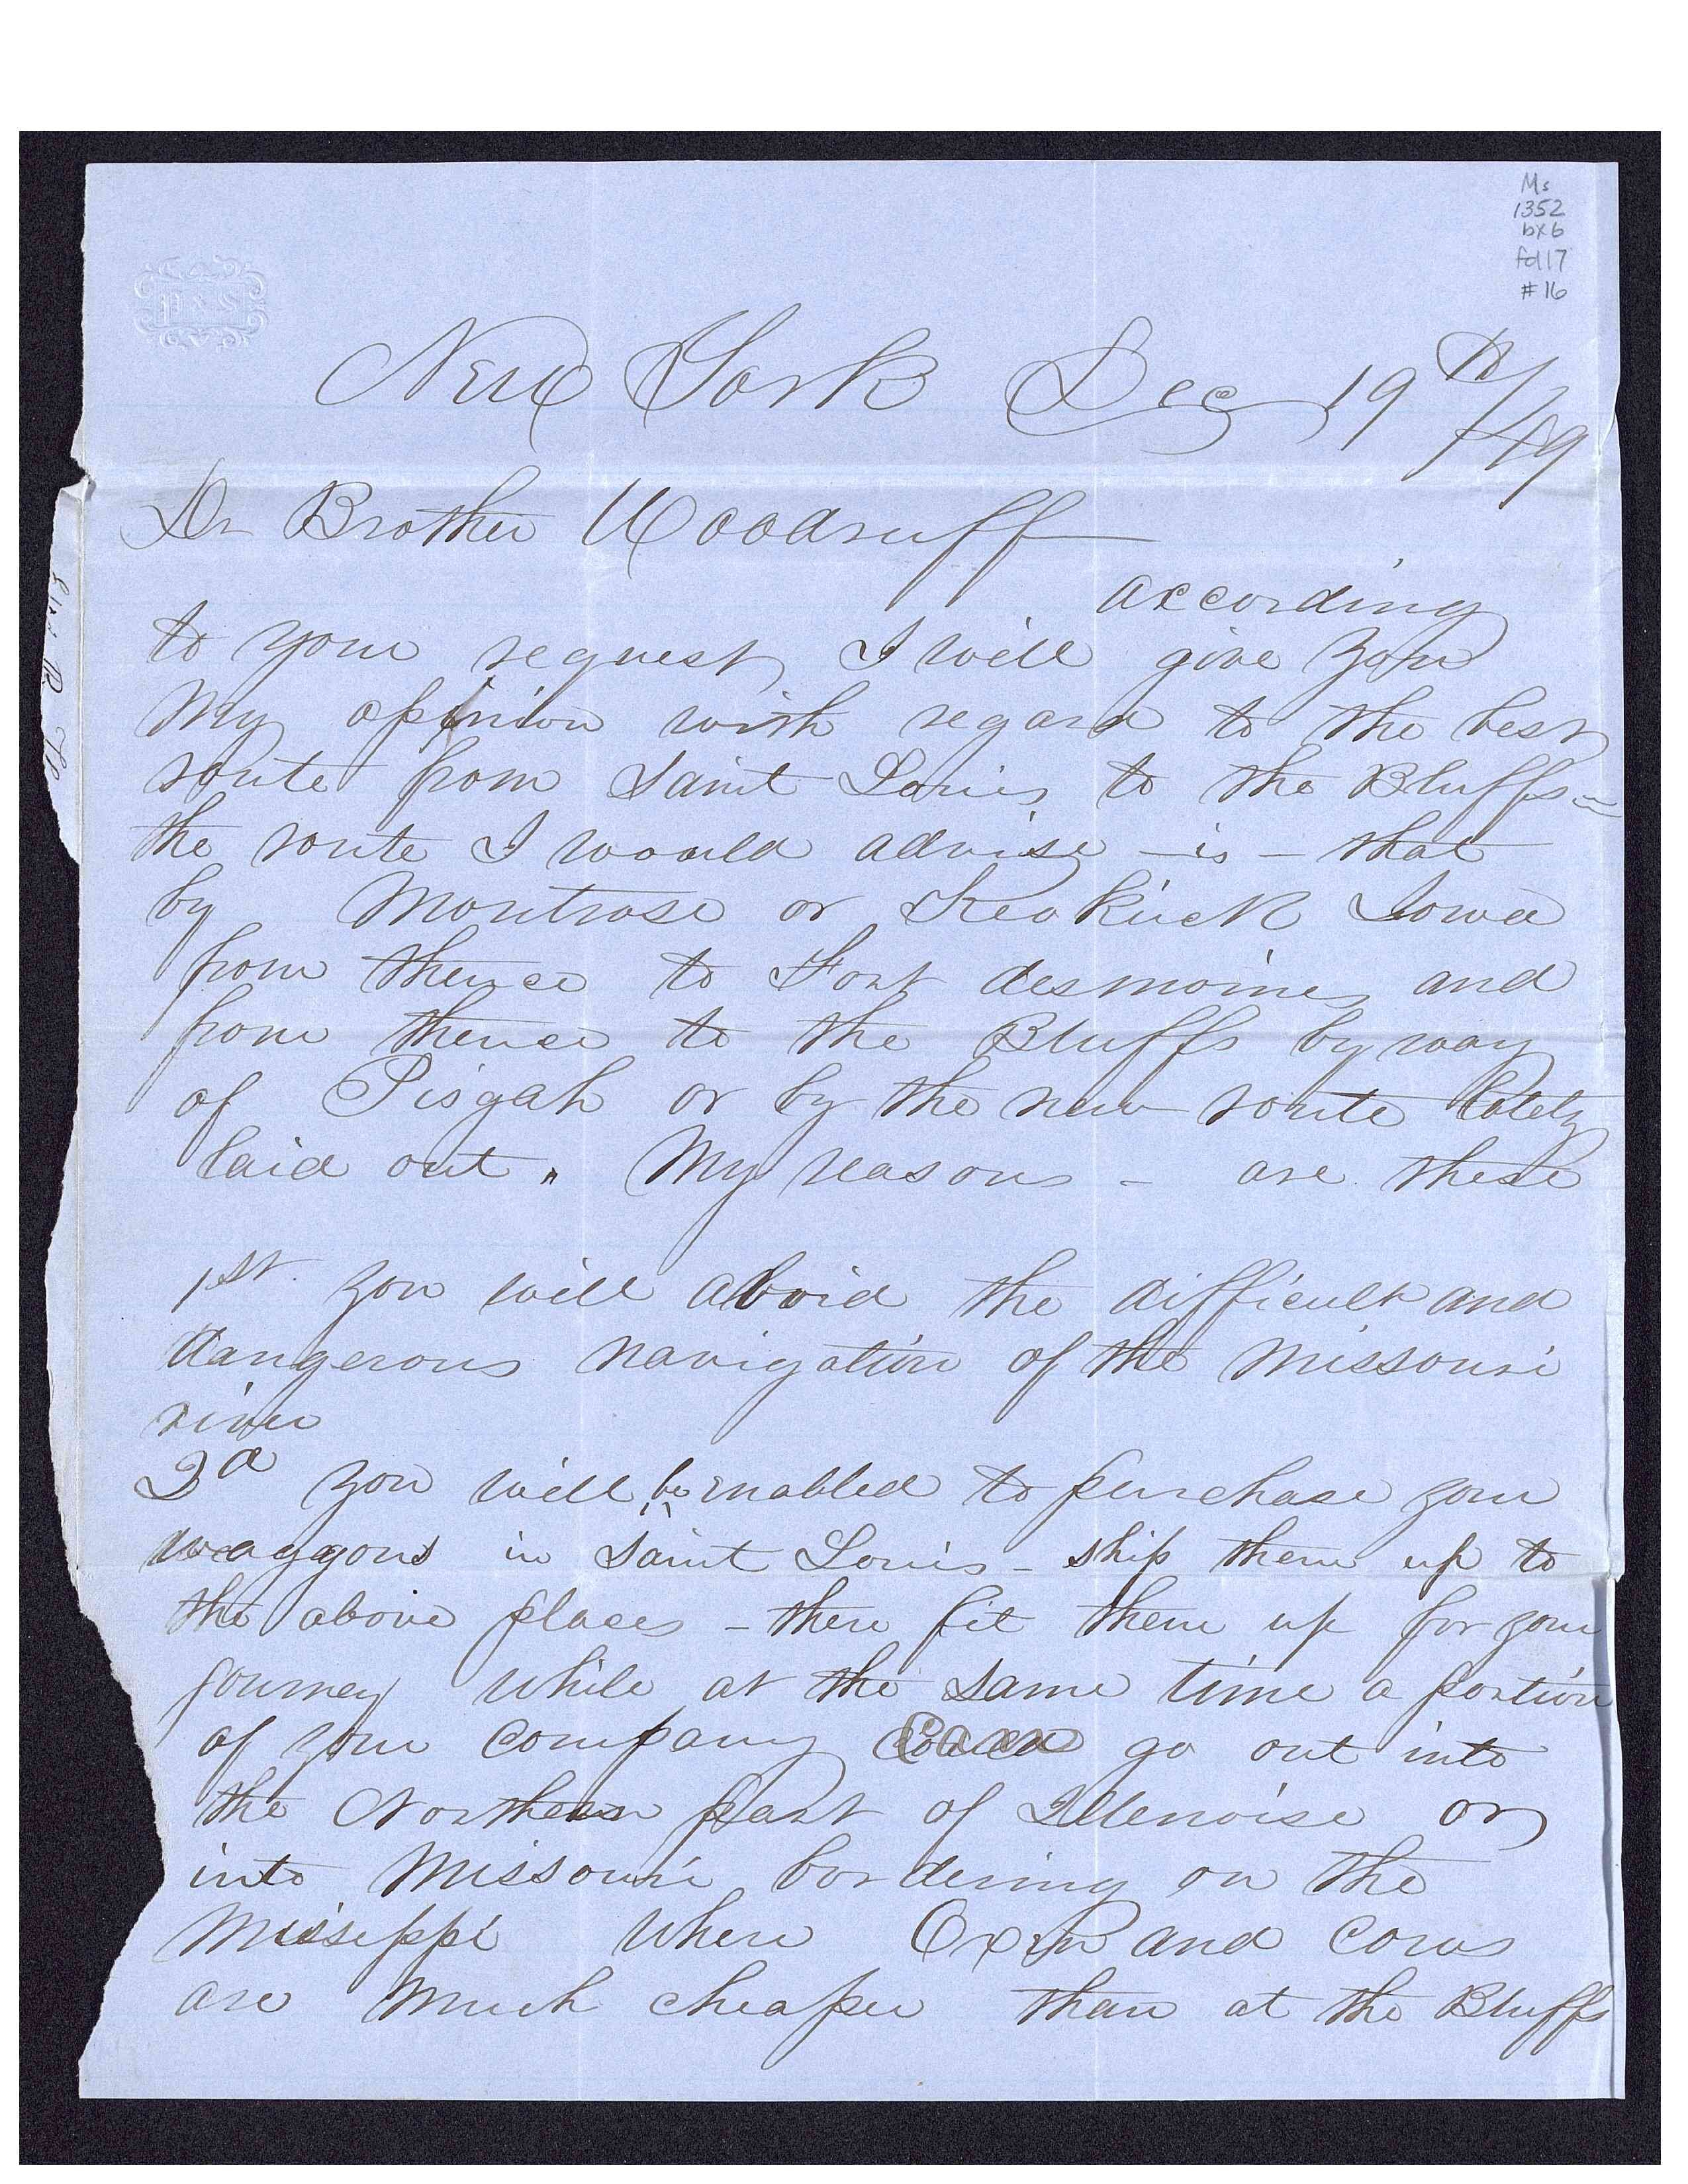 Ms
1352
bx6
fd17
#16
P & S
New York Dec 19th/49
Dr Brother Woodruff
according
to your request I will give you
my opinion with regard to the best
route from Saint Louis to the Bluffs =
the route I would advise - is - that
by Montrose or Keokuck Iowa
from thence to Fort desmoines and
from thence to the Bluffs by way
of Pisgah or by the new route lately
laid out. My reasons - are these
1st you will avoid the difficult and
dangerous navigation of the Missouri
river
2d you will be enabled to purchase your
waggons in Saint Louis - ship them up to
the above places - there fit them up for your
journey while at the same time a portion
of your company can go out into
the Northern part of Illenoise or
into Missouri bordering on the
Misseppi where Oxen and cows
are much cheaper than at the Bluffs